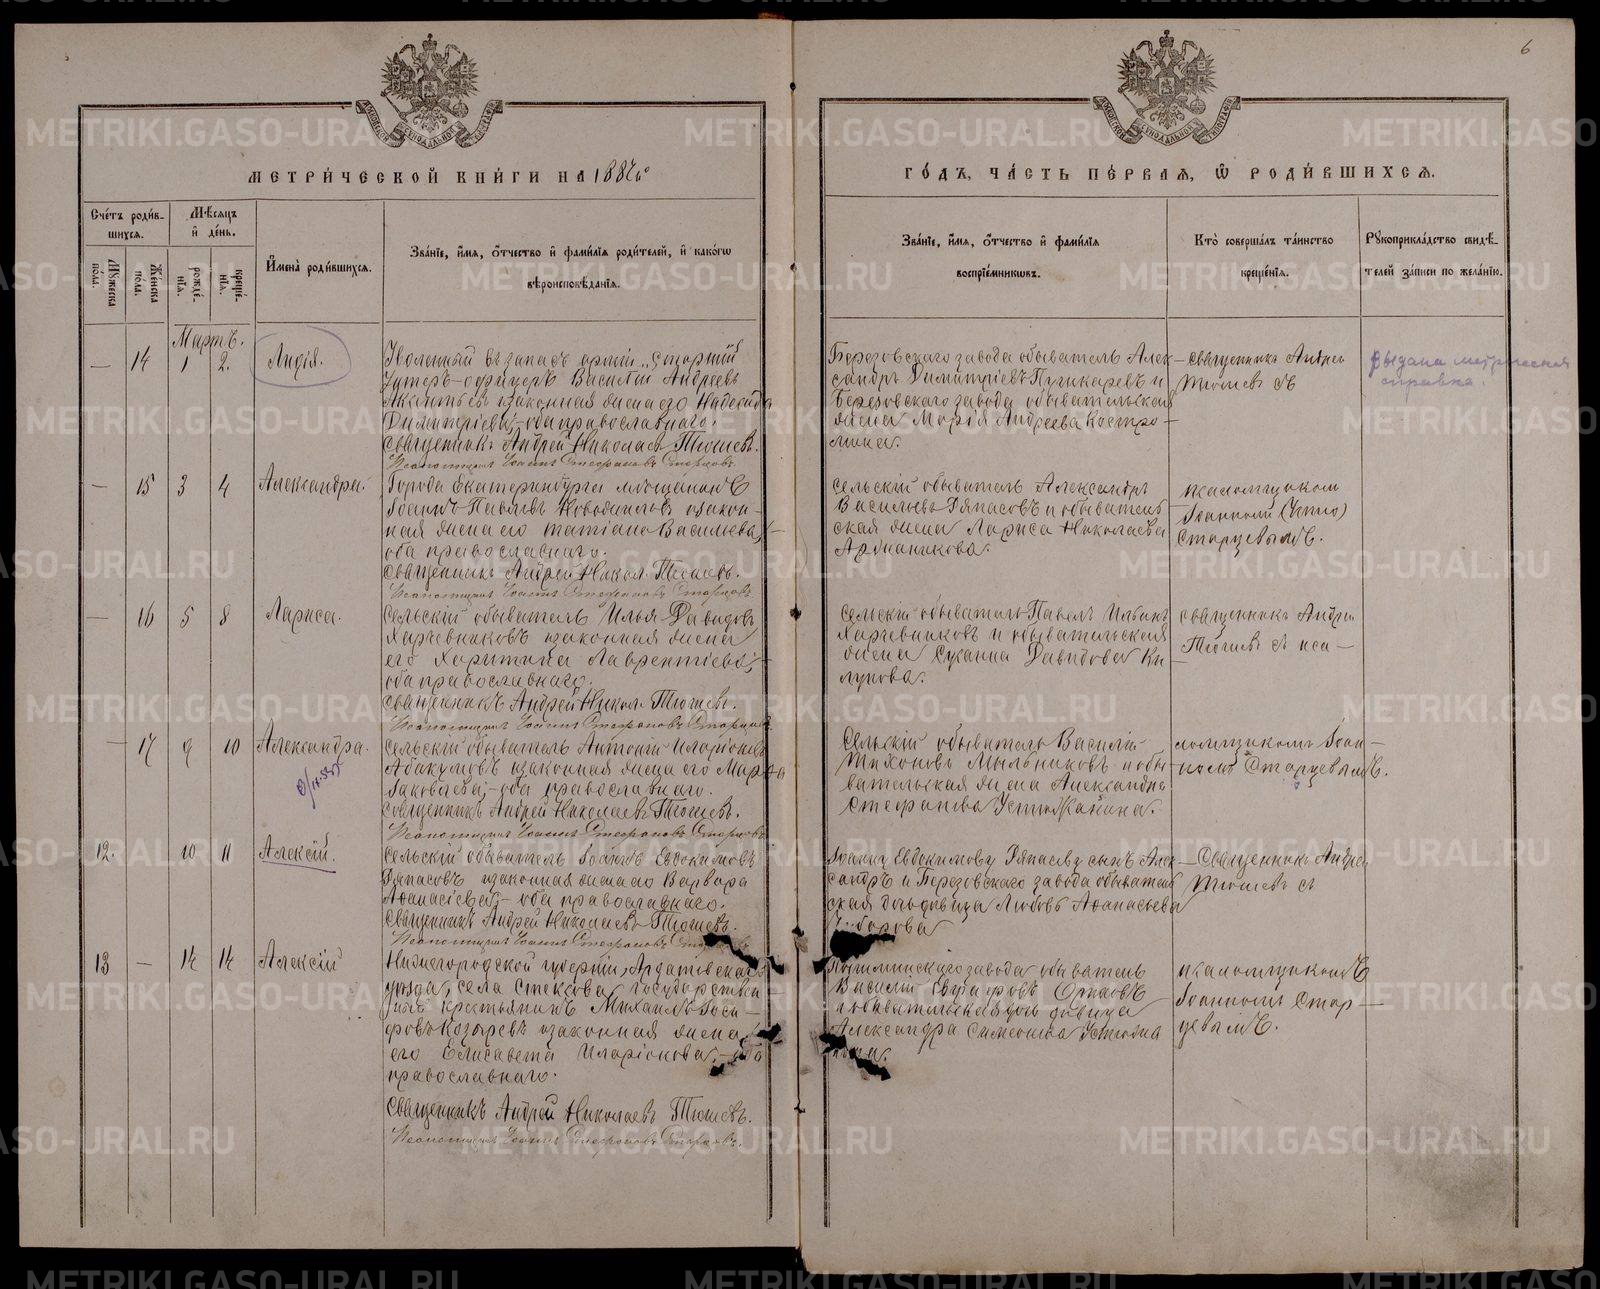 6
МЕТРИ́ЧЕСКОЙ КНИ́ГИ НА 1887 го́
ГО́ДЪ, ЧА́СТЬ ПЕ́РВАЯ, Ѡ҆ РОДИ́ВШИХСЯ.
Сче́тъ роди́в-
шихся.
Му́жеска по́ла.
Же́нска по́ла.
Мѣ́сяцъ
и҆ де́нь.
рожде́нїя.
креще́нїя.
И҆мена̀ роди́вшихся.
Зва́нїе, и҆́мя, ѻ҆́тчество и҆ фами́лїя роди́телей, и҆ како́гѡ
вѣроисповѣ́данїя.
Зва́нїе, и҆́мя, ѻ҆́тчество и҆ фами́лїя
воспрїе́мникѡвъ.
Кто̀ соверша́лъ та́инство
креще́нїя.
Рꙋкоприкла́дство свидѣ́-
телей за́писи по жела́нїю.
Мартъ.
— 14 1 2. Лидія.
Уволенный въ запасъ арміи, старшій
Унтеръ-офицеръ Василій Андреевъ
и законная жена его Надежда
Димитріева, - оба православнаго.
Священникъ Андрей Николаевъ Тюшевъ.
Псаломщикъ Іоаннъ Стефановъ Старцевъ.
Березовскаго завода обыватель Алек-
сандръ Димитріевъ Пушкаревъ и
Березовскаго завода обывательская
жена Марія Андреева Костро-
мина.
— священникъ Андрей
Тюшевъ съ
Выдана метрическая
справка.
— 15 3 4 Александра.
Города Екатеринбурга мѣщанинъ
Іоаннъ Павловъ и закон-
ная жена его Татіана Васильева, -
оба православнаго.
Священникъ Андрей Никол. Тюшевъ.
Псаломщикъ Іоаннъ Стефановъ Старцевъ
Сельскій обыватель Александръ
Васильевъ Ряпасовъ и обыватель-
ская жена Лариса Николаева
псаломщикомъ
Іоанномъ
Старцевымъ.
— 16 5 8 Лариса.
Сельскій обыватель Илья Давидовъ
Харчевниковъ и законная жена
его Харитина Лаврентіева, -
оба православнаго.
Священникъ Андрей Никол. Тюшевъ.
Псаломщикъ Іоаннъ Стефановъ Старцевъ.
Сельскій обыватель Павелъ Ильинъ
Харчевниковъ и обывательская
жена Сусанна Давидова
священникъ Андрей
Тюшевъ съ пса-
— 17 9 10 Александра.
Сельскій обыватель Антоній Иларіоновъ
Абакумовъ и законная жена его Марфа
Іаковлева, - оба православнаго.
Священникъ Андрей Николаевъ Тюшевъ.
Псаломщикъ Іоаннъ Стефановъ Старцевъ
Сельскій обыватель Василій
Тихоновъ Мыльниковъ и обы-
вательская жена Александра
Стефанова Устюжанина.
ломщикомъ Іоан-
номъ Старцевымъ.
12. 10 11 Алексій.
Сельскій обыватель Іоаннъ Евдокимовъ
Ряпасовъ и законная жена его Варвара
Аѳанасіева, - оба православнаго.
Священникъ Андрей Николаевъ Тюшевъ.
Псаломщикъ Іоаннъ Стефановъ Старцевъ
Іоанну Евдокимову Ряпасову сынъ Алек-
сандръ и Березовскаго завода обыватель-
ская вдовица Любовь Аѳанасьева
— Священникъ Андрей
Тюшевъ съ
13 — 14 14 Алексій
Нижегородской губерніи, Ардатовскаго
уѣзда, села Стексова государствен-
ный крестьянинъ Михаилъ Іоси-
фовъ Козыревъ и законная жена
его Елисавета Иларіонова, - оба
православнаго.
Священникъ Андрей Николаевъ Тюшевъ.
Псаломщикъ Іоаннъ Стефановъ Старцевъ.
завода обыватель
Василій Орловъ
и обывательская дочь дѣвица
Александра Симеонова
псаломщикомъ
Іоанномъ Стар-
цевымъ.
METRIKI.GASO-URAL.RU